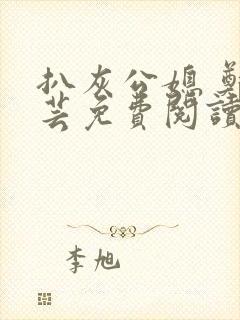 扒灰公媳 鄭
芸免費閱讀
李旭